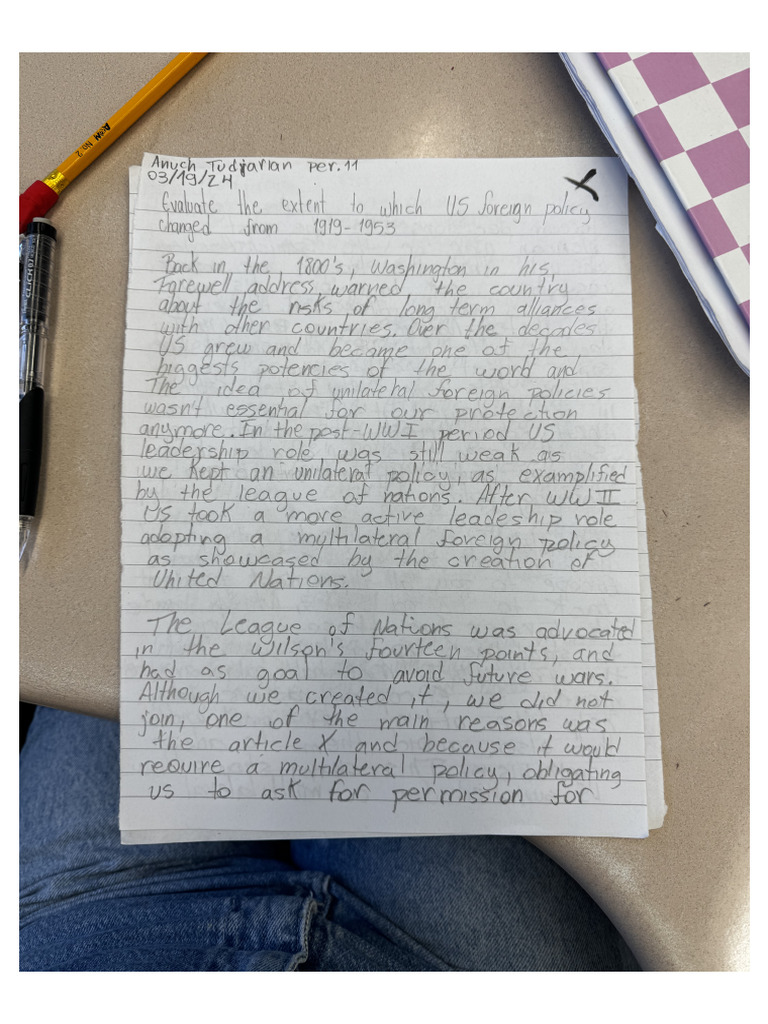 AOM No. 2
CLIC
Anuch Tudjarian per. 11
03/19/24
X
Evaluate the extent to which US foreign policy
changed from 1919-1953
Back in the 1800's, Washington in his,
Farewell address, warned the country
about the risks of long term alliances
with other countries. Over the decades
US grew and became one of the,
biggests potencies of the word and
The idea of unilateral foreign policies
wasn't essential for our protection
anymore. In the post-WWI period US
leadership role, was still weak as
we kept an unilateral policy, as examplified
by the league of nations. After WWII
US took a more active leadeship role
adopting a multilateral foreign policy
as showcased by the creation of
United Nations.
The League of Nations was advocated
in the Wilson's fourteen points, and
had as goal to avoid future wars.
Although we created it, we did not
join, one of the main reasons was
the article X and because it would
require a multilateral policy, obligating
us to ask for permission for